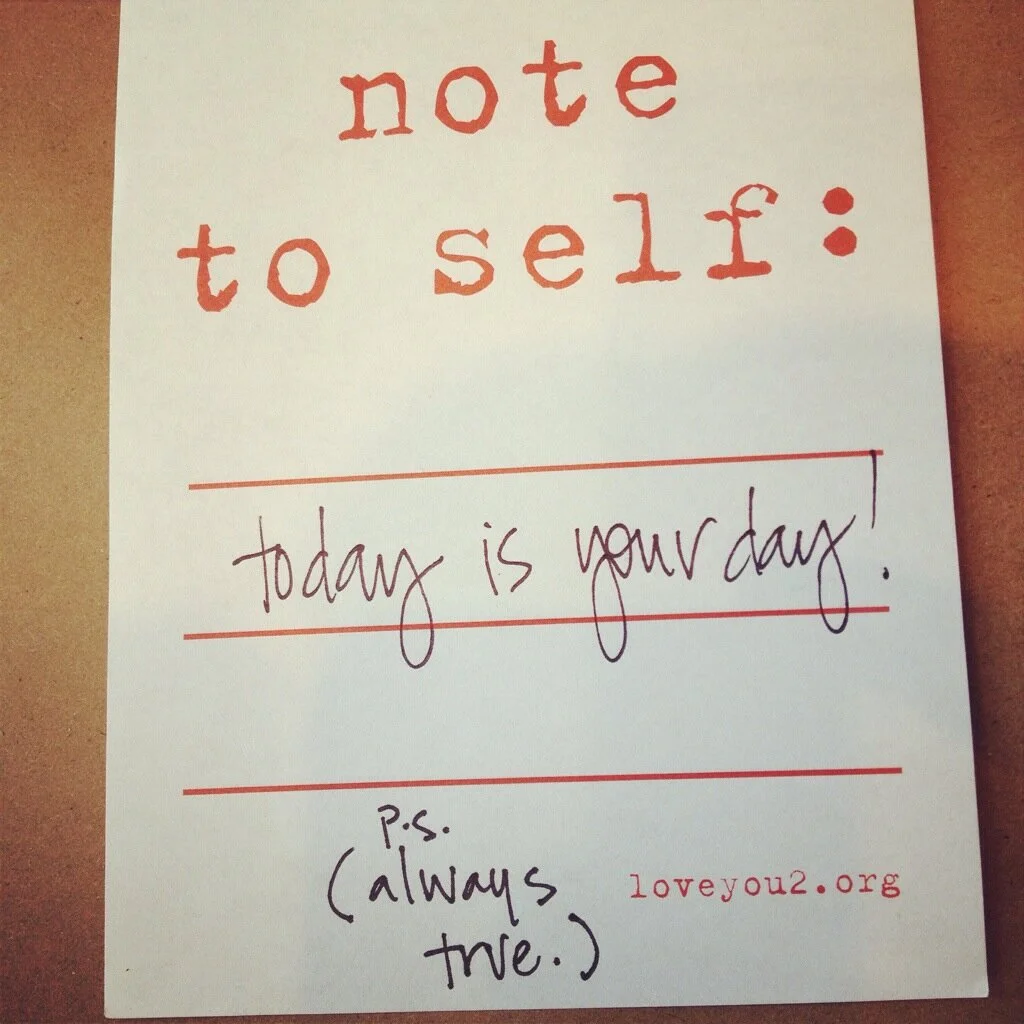 note
to self:
today is your day!
p.s.
(always
true.)
loveyou2.org